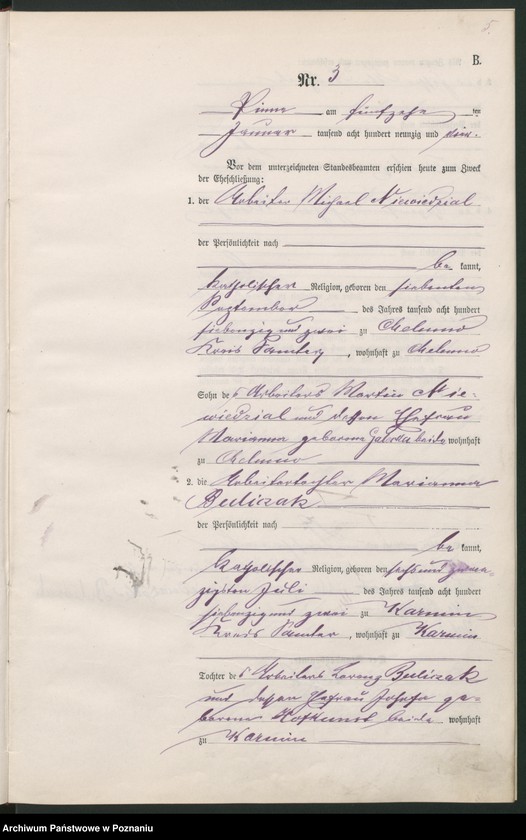 5.
B.
Nr. 3
Pinne am fünfzehn ten
Januar tausend acht hundert neunzig und vier.
Vor dem unterzeichneten Standesbeamten erschien heute zum Zweck
der Eheschließung:
1. der Arbeiter Michael Niewiedzial
der Persönlichkeit nach
be kannt,
katholischer Religion, geboren den siebenten
September des Jahres tausend acht hundert
siebenzig und zwei zu
Kreis Samter, wohnhaft zu
Sohn des Arbeiters Martin Nie-
wiedzial und dessen Ehefrau
Marianna geborene beide wohnhaft
zu
2. die Arbeitertochter Marianna
Buliczak
der Persönlichkeit nach
be kannt,
katholischer Religion, geboren den sechs und zwan-
zigsten Juli des Jahres tausend acht hundert
siebenzig und zwei zu Karmin
Kreis Samter, wohnhaft zu Karmin
Tochter des Arbeiters Lorenz Buliczak
und dessen Ehefrau Josefa ge-
borene beide wohnhaft
zu Karmin
Archiwum Państwowe w Poznaniu